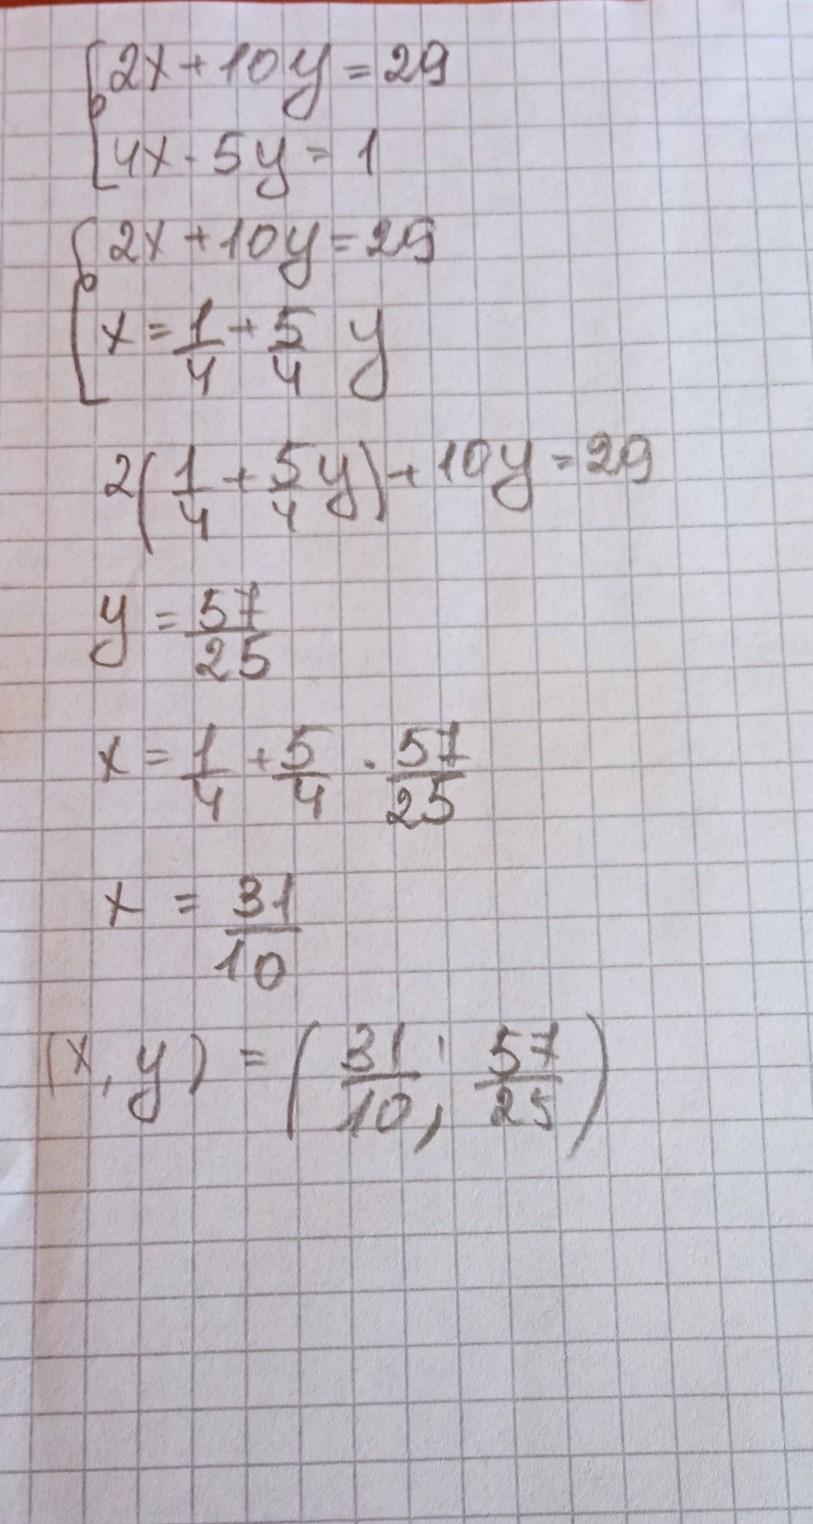 2x + 10y = 29
4x - 5y = 1
2x + 10y = 29
x = 1/4 + 5/4 y
2(1/4 + 5/4 y) + 10y = 29
y = 57/25
x = 1/4 + 5/4 · 57/25
x = 31/10
(x, y) = (31/10; 57/25)